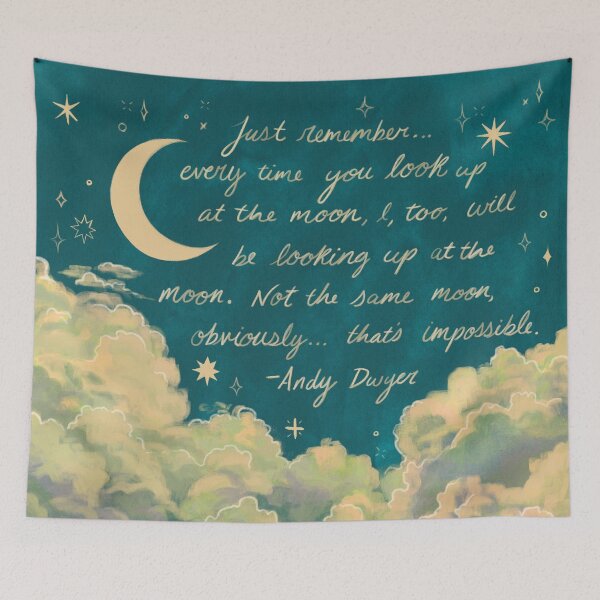 Just remember...
every time you look up
at the moon, I, too, will
be looking up at the
moon. Not the same moon,
obviously... that's impossible.
-Andy Dwyer